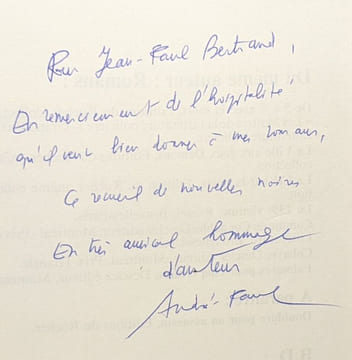 Pour Jean-Paul Bertrand,
En remerciement de l'hospitalité
qu'il veut bien donner à mes romans,
Ce recueil de nouvelles noires
En très amical hommage
d'auteur
André-Paul